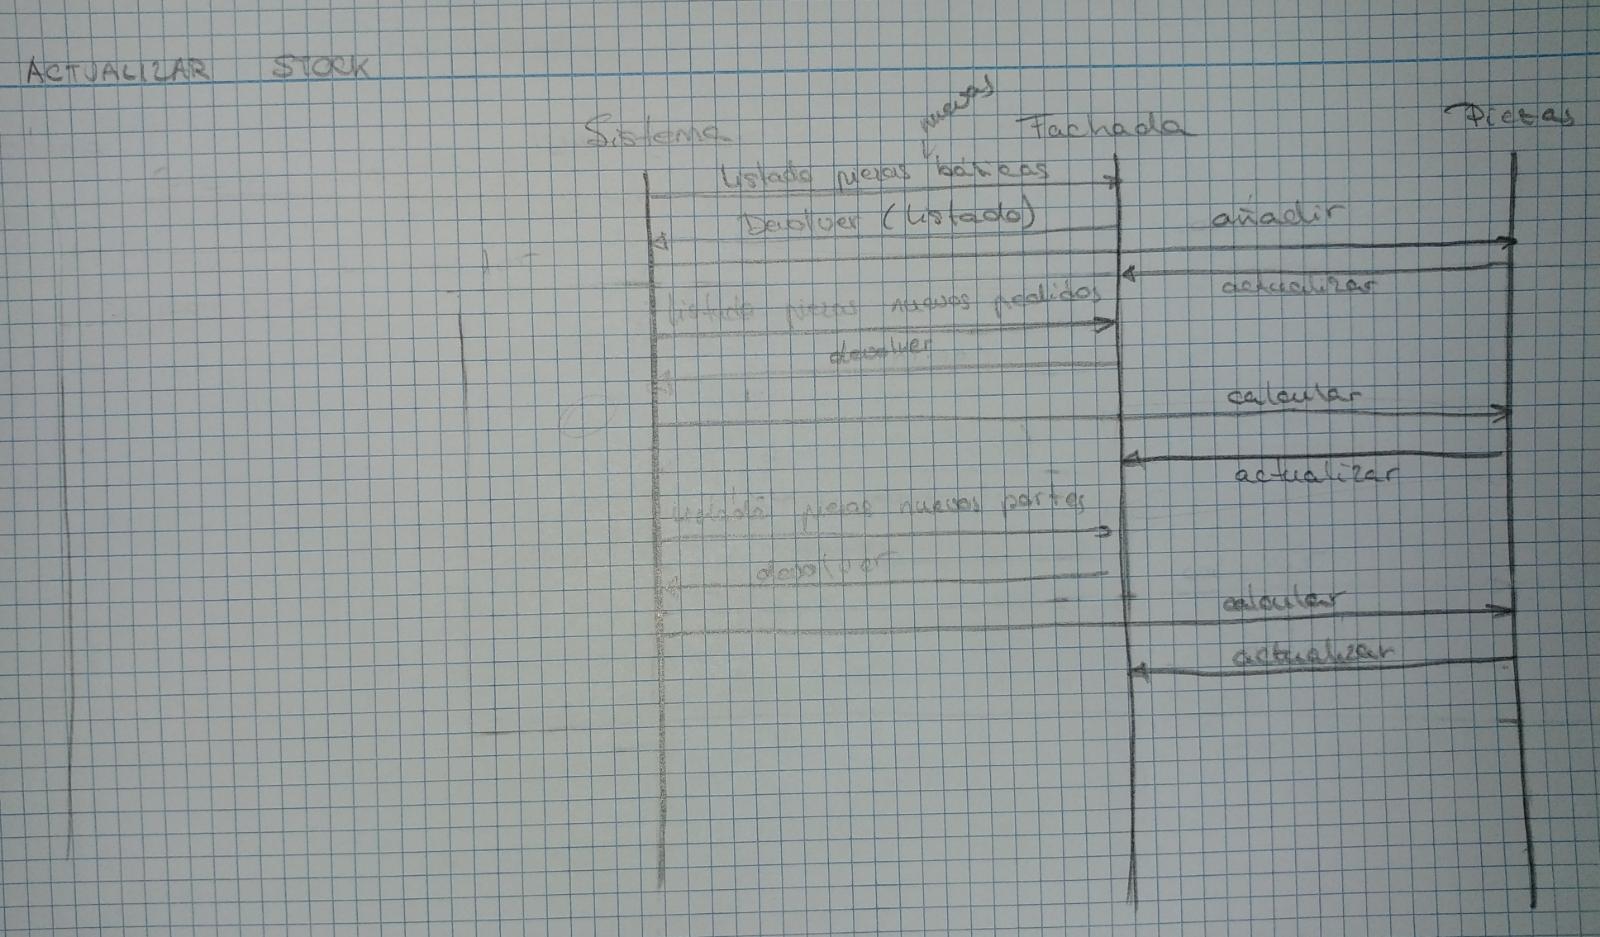 ACTUALIZAR STOCK
nuevas
Sistema Fachada Piezas
Listado piezas básicas
Devolver (Listado) añadir
actualizar
Listado piezas nuevos pedidos
devolver
calcular
actualizar
Listado piezas nuevos partes
devolver
calcular
actualizar